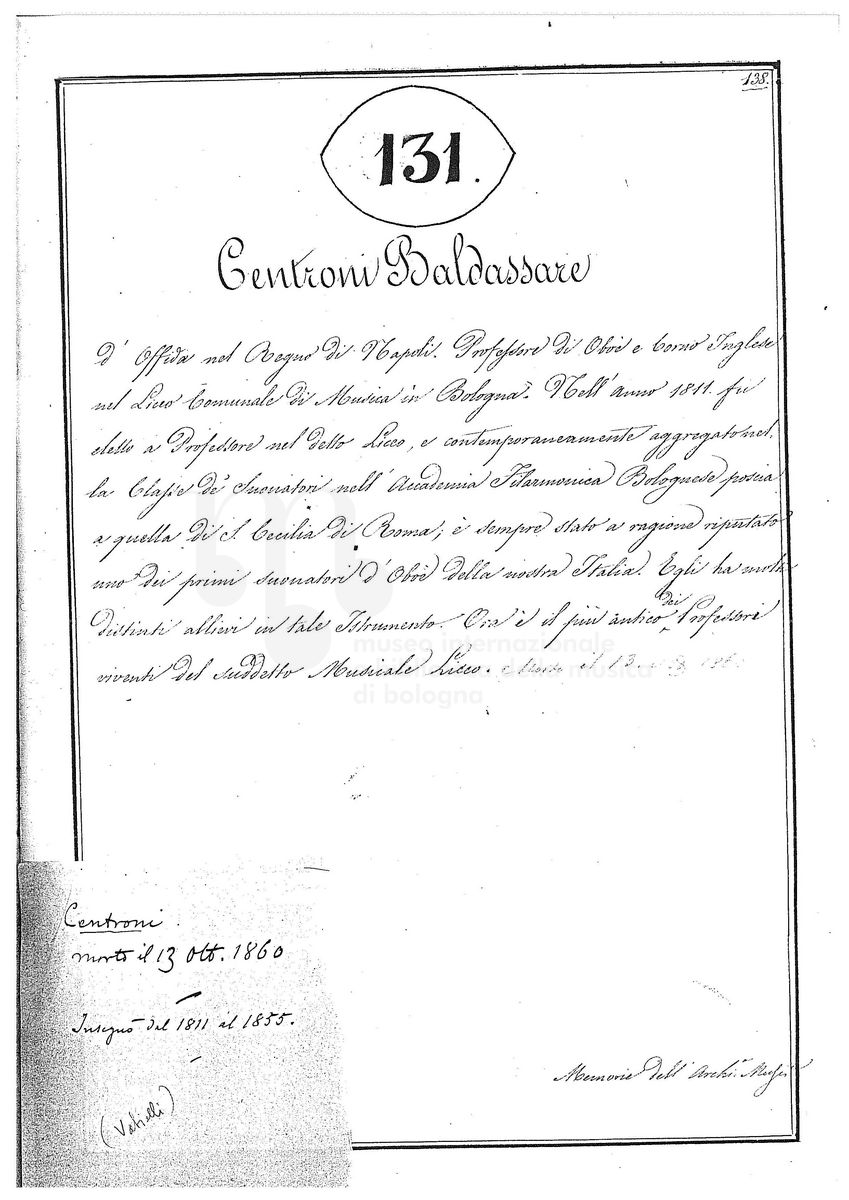 138.
131.
Centroni Baldassare
d' Offida nel Regno di Napoli. Professore di Oboè e Corno Inglese
nel Liceo Comunale di Musica in Bologna. Nell' Anno 1811. fu
eletto a Professore nel detto Liceo, e contemporaneamente aggregato nel-
la Classe de' Suonatori nell' Accademia Filarmonica Bolognese poscia
a quella di S. Cecilia di Roma; è sempre stato a ragione riputato
uno dei primi suonatori d' Oboè della nostra Italia. Egli ha molti
distinti allievi in tale Istrumento. Ora è il più antico dei Professori
viventi del suddetto Musicale Liceo. Morto il 13
museo internazionale
della musica
di bologna
Centroni
morto il 13 Ott. 1860
Insegnò dal 1811 al 1855.
(Vatielli)
Memorie dell' Archi.